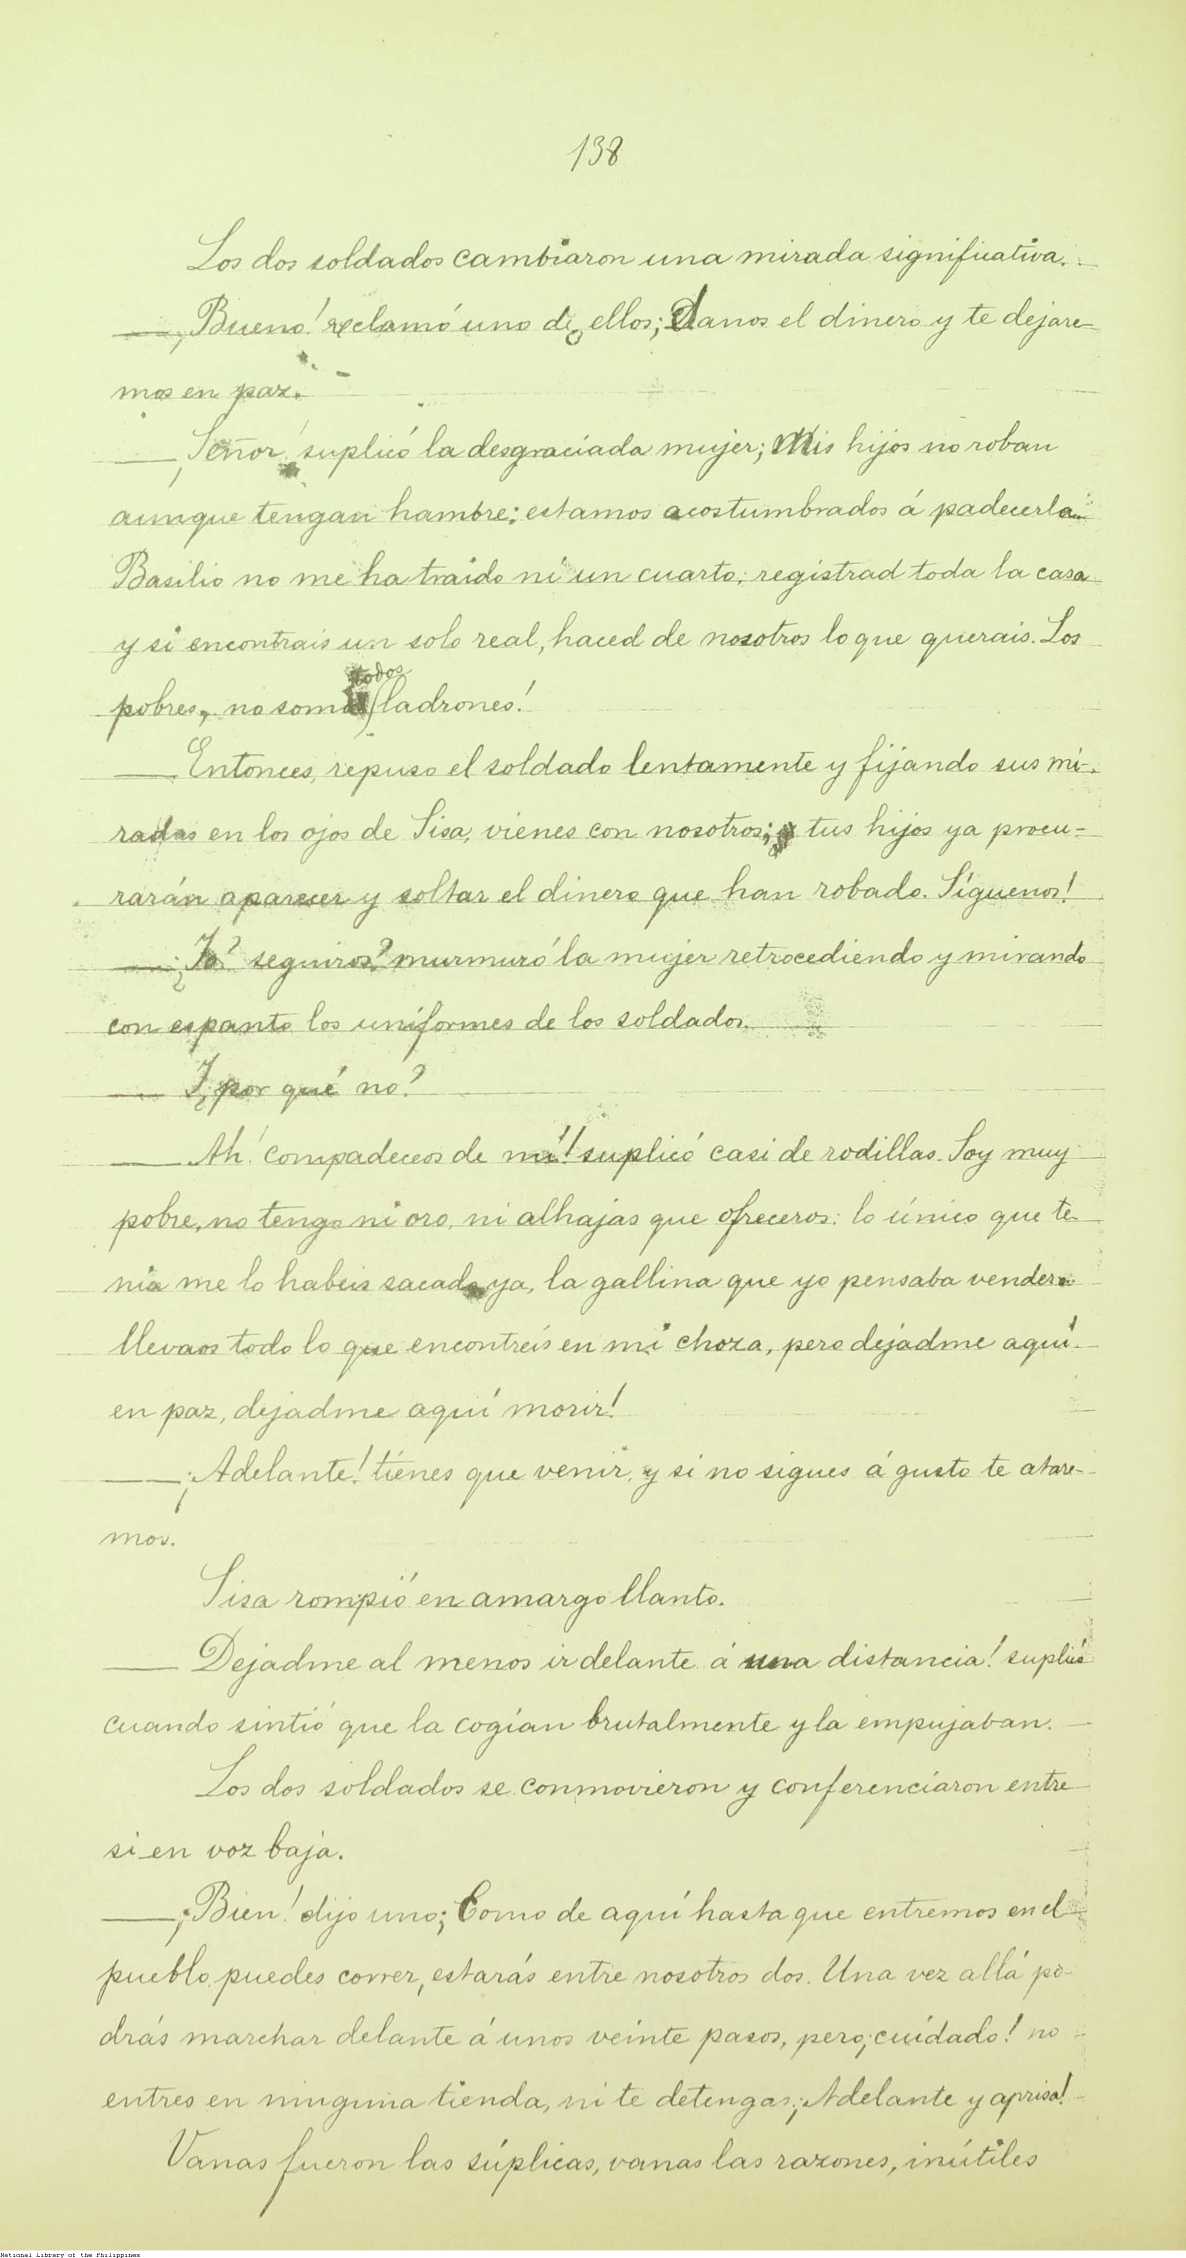 138
Los dos soldados cambiaron una mirada significativa.
— ¡Bueno! reclamó uno de ellos; danos el dinero y te dejare-
mos en paz.
— ¡Señor! suplicó la desgraciada mujer; mis hijos no roban
aunque tengan hambre; estamos acostumbrados á padecerla.
Basilio no me ha traido ni un cuarto; registrad toda la casa
y si encontrais un solo real, haced de nosotros lo que querais. Los
pobres, no somos todos ladrones!
— Entonces, repuso el soldado lentamente y fijando sus mi-
radas en los ojos de Sisa, vienes con nosotros; tus hijos ya procu-
rarán aparecer y soltar el dinero que han robado. Síguenos!
— ¿Yo? seguiros? murmuró la mujer retrocediendo y mirando
con espanto los uniformes de los soldados.
— Y ¿por qué no?
— Ah! compadeceos de mí! suplicó casi de rodillas. Soy muy
pobre, no tengo ni oro, ni alhajas que ofreceros: lo único que te-
nia me lo habeis sacado ya, la gallina que yo pensaba vender
llevaos todo lo que encontreis en mi choza, pero dejadme aquí
en paz, dejadme aquí morir!
— ¡Adelante! tienes que venir, y si no sigues á gusto te atare-
mos.
Sisa rompió en amargo llanto.
— Dejadme al menos ir delante á una distancia! suplicó
cuando sintió que la cogían brutalmente y la empujaban.
Los dos soldados se conmovieron y conferenciaron entre
si en voz baja.
— ¡Bien! dijo uno; Como de aquí hasta que entremos en el
pueblo puedes correr, estarás entre nosotros dos. Una vez allá po-
drás marchar delante á unos veinte pasos, pero ¡cuidado! no
entres en ninguna tienda, ni te detengas. ¡Adelante y aprisa!
Vanas fueron las súplicas, vanas las razones, inútiles
National Library of the Philippines